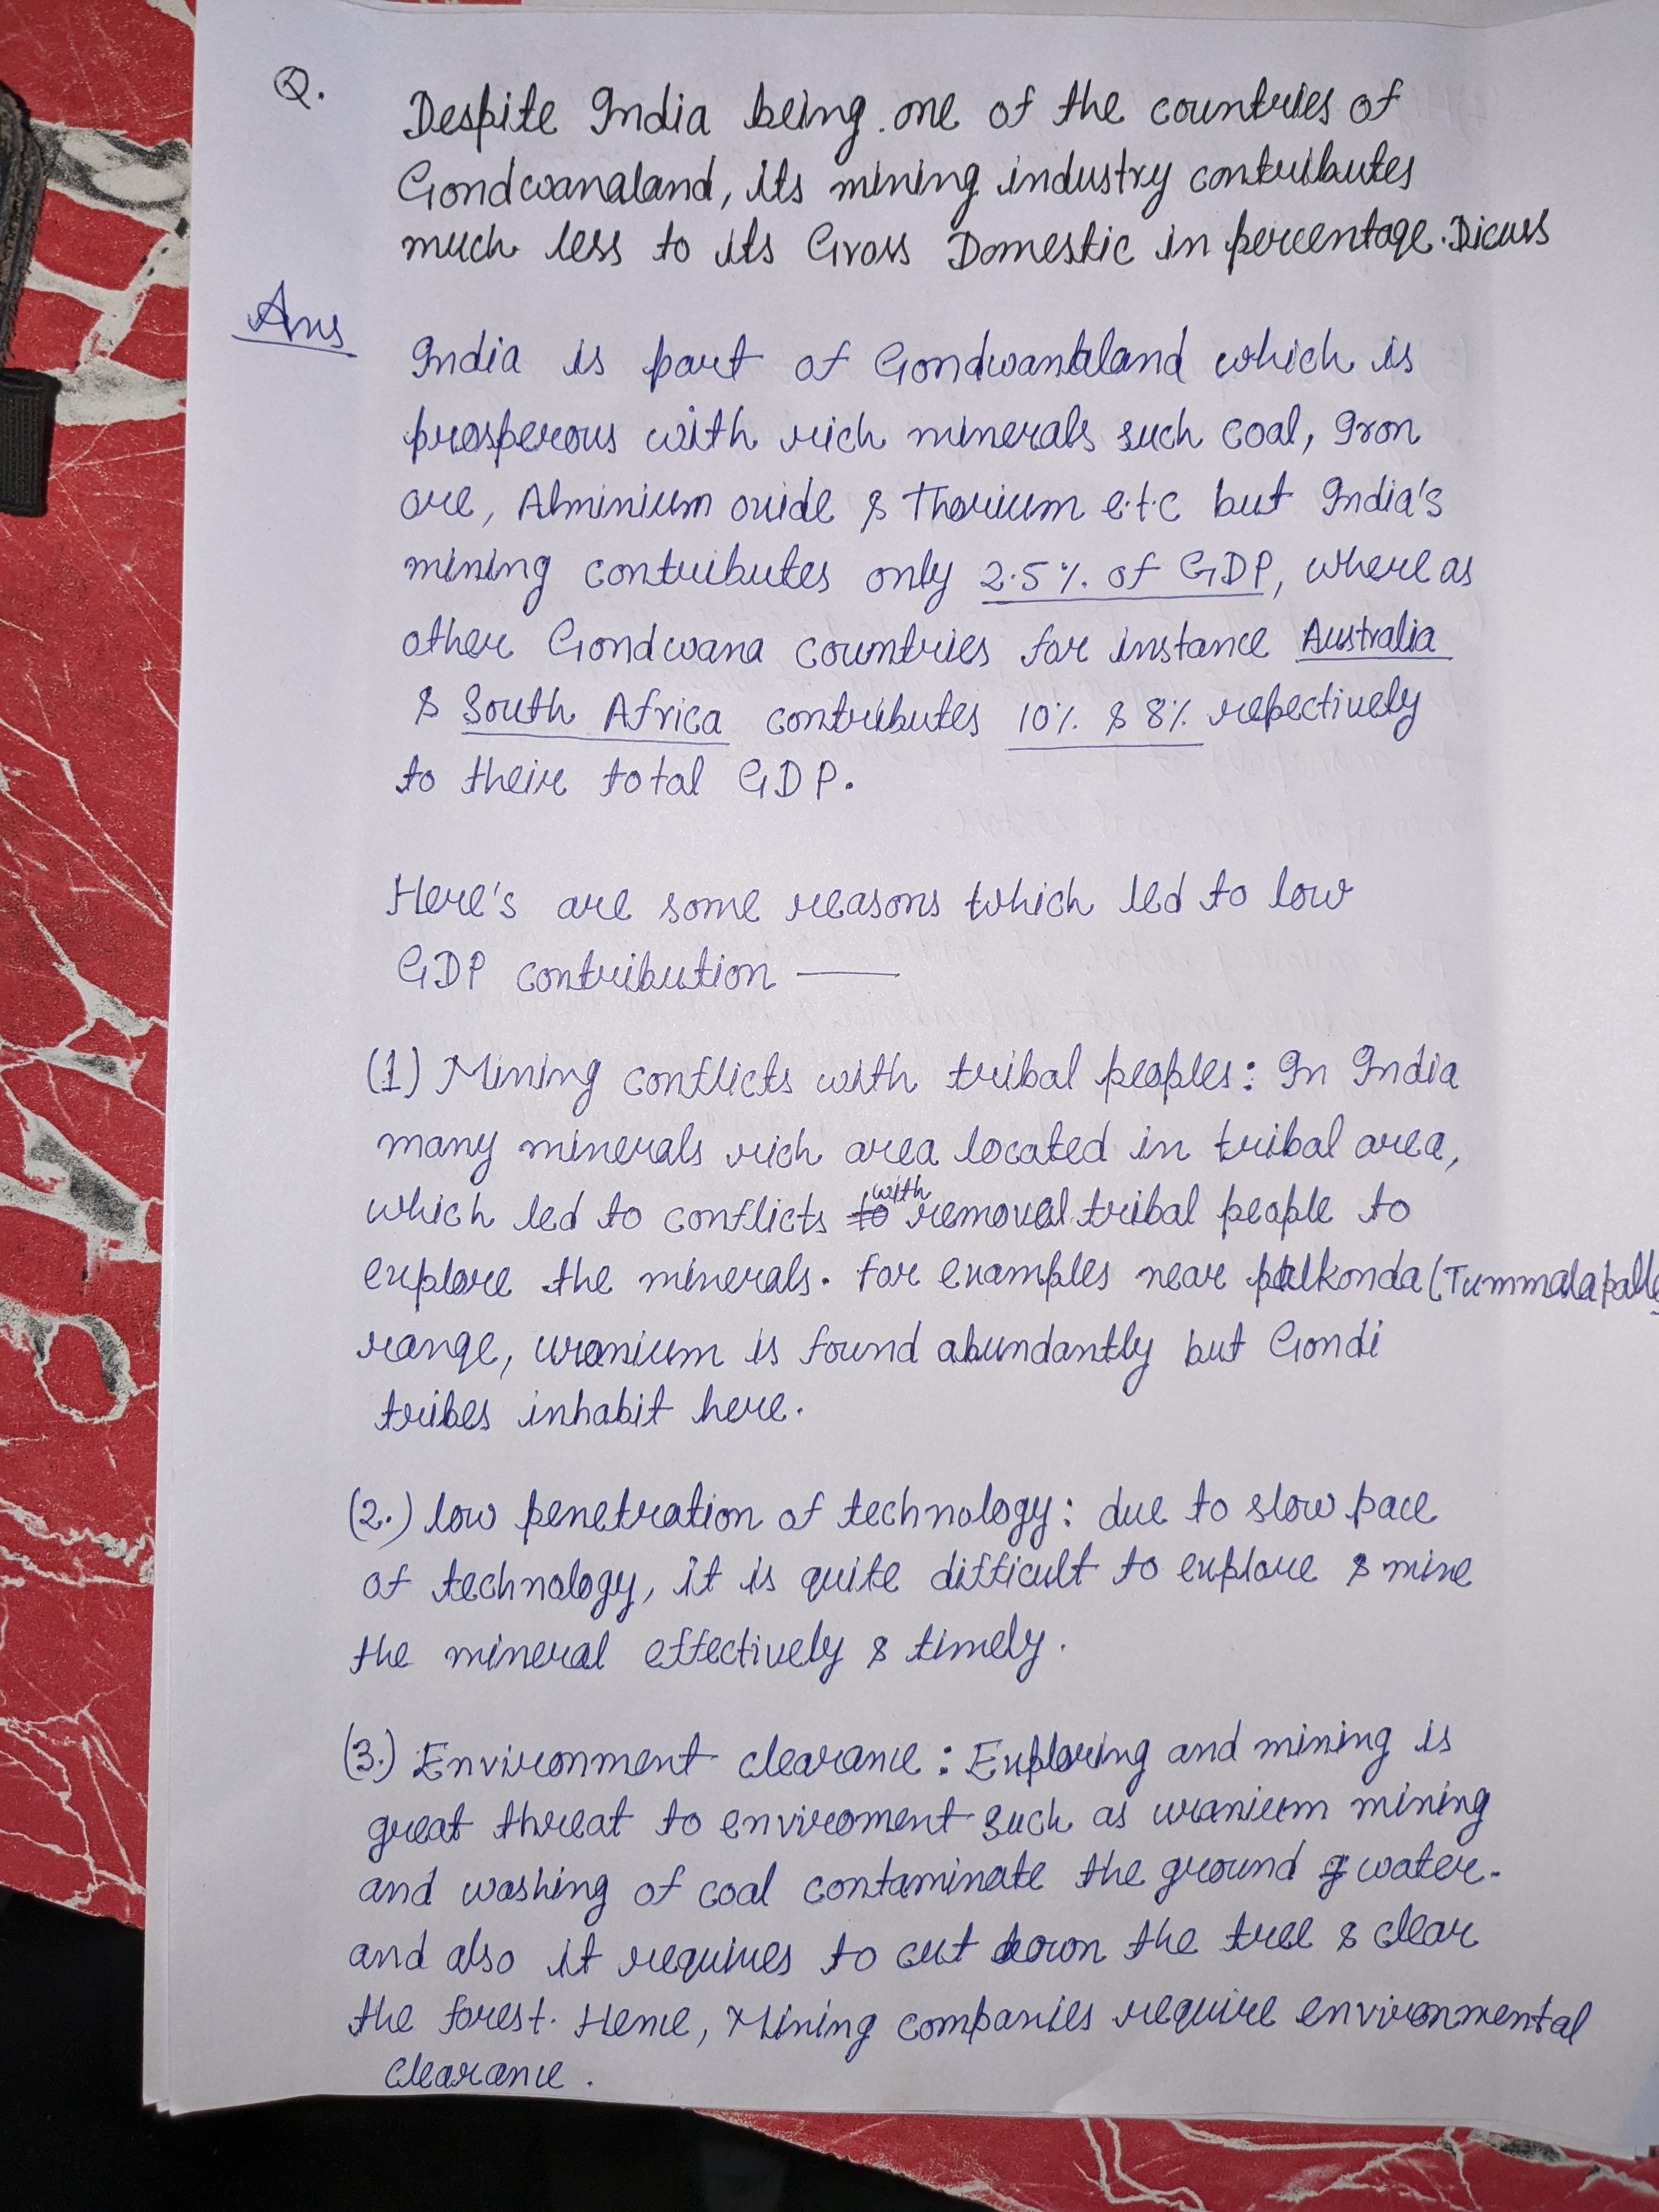 Q. Despite India being one of the countries of
Gondwanaland, its mining industry contributes
much less to its Gross Domestic in percentage. Dicuss
Ans India is part of Gondwanaland which is
prosperous with rich minerals such coal, Iron
ore, Alminium oxide & Thorium e.t.c but India's
mining contributes only 2.5% of GDP, where as
other Gondwana countries for instance Australia
& South Africa contributes 10% & 8% repectively
to their total GDP.
Here's are some reasons which led to low
GDP contribution —
(1) Mining conflicts with tribal peoples: In India
many minerals rich area located in tribal area,
which led to conflicts to with removal tribal people to
explore the minerals. For examples near palkonda (Tummalapalle
range, uranium is found abundantly but Gondi
tribes inhabit here.
(2.) low penetration of technology: due to slow pace
of technology, it is quite difficult to explore & mine
the mineral effectively & timely.
(3.) Environment clearance: Exploring and mining is
great threat to enviroment such as uranium mining
and washing of coal contaminate the ground water.
and also it requires to cut down the tree & clear
the forest. Hence, Mining companies require environmental
clearance.